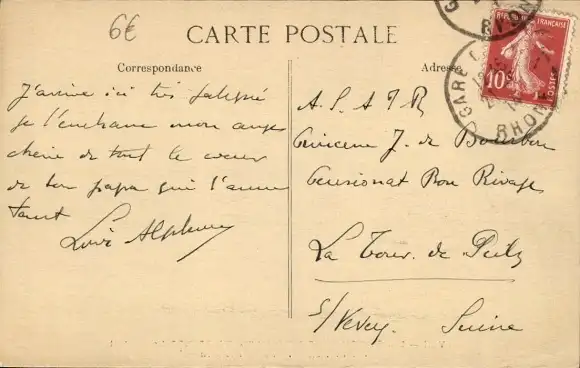 6€
CARTE POSTALE
Correspondance
Adresse
RÉPUBLIQUE FRANÇAISE
10c
POSTES
GARE
RHONE
RHONE
J'arrive ici très fatigué
je t'embrasse mon ange
chérie de tout le coeur
de ton papa qui t'aime
tant
Louis Alphonse
A. S. A. I. R.
Princesse J. de Bourbon
Pensionat Bon Rivage
La Tour de Peilz
s/ Vevey. Suisse